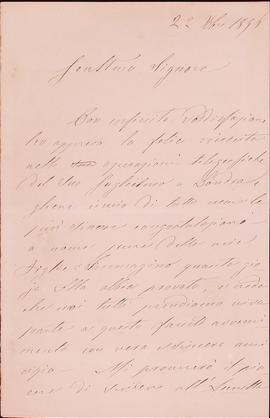 22 Xbre 1896
Gent.ma Signora
Con infinita soddisfazione
ho appreso la felice riuscita
nelle operazioni telegrafiche
del Suo Guglielmo a Londra e
gliene invio di tutto cuore le
più sincere congratulazioni
a nome pure delle mie
figlie. Immagino quanta gio-
ja Ella abbia provato, e creda
che noi tutti prendiamo viva
parte a questo fausto avveni-
mento con vera e sincera ami-
cizia. Mi procurerò il pia-
cere di scrivere all'